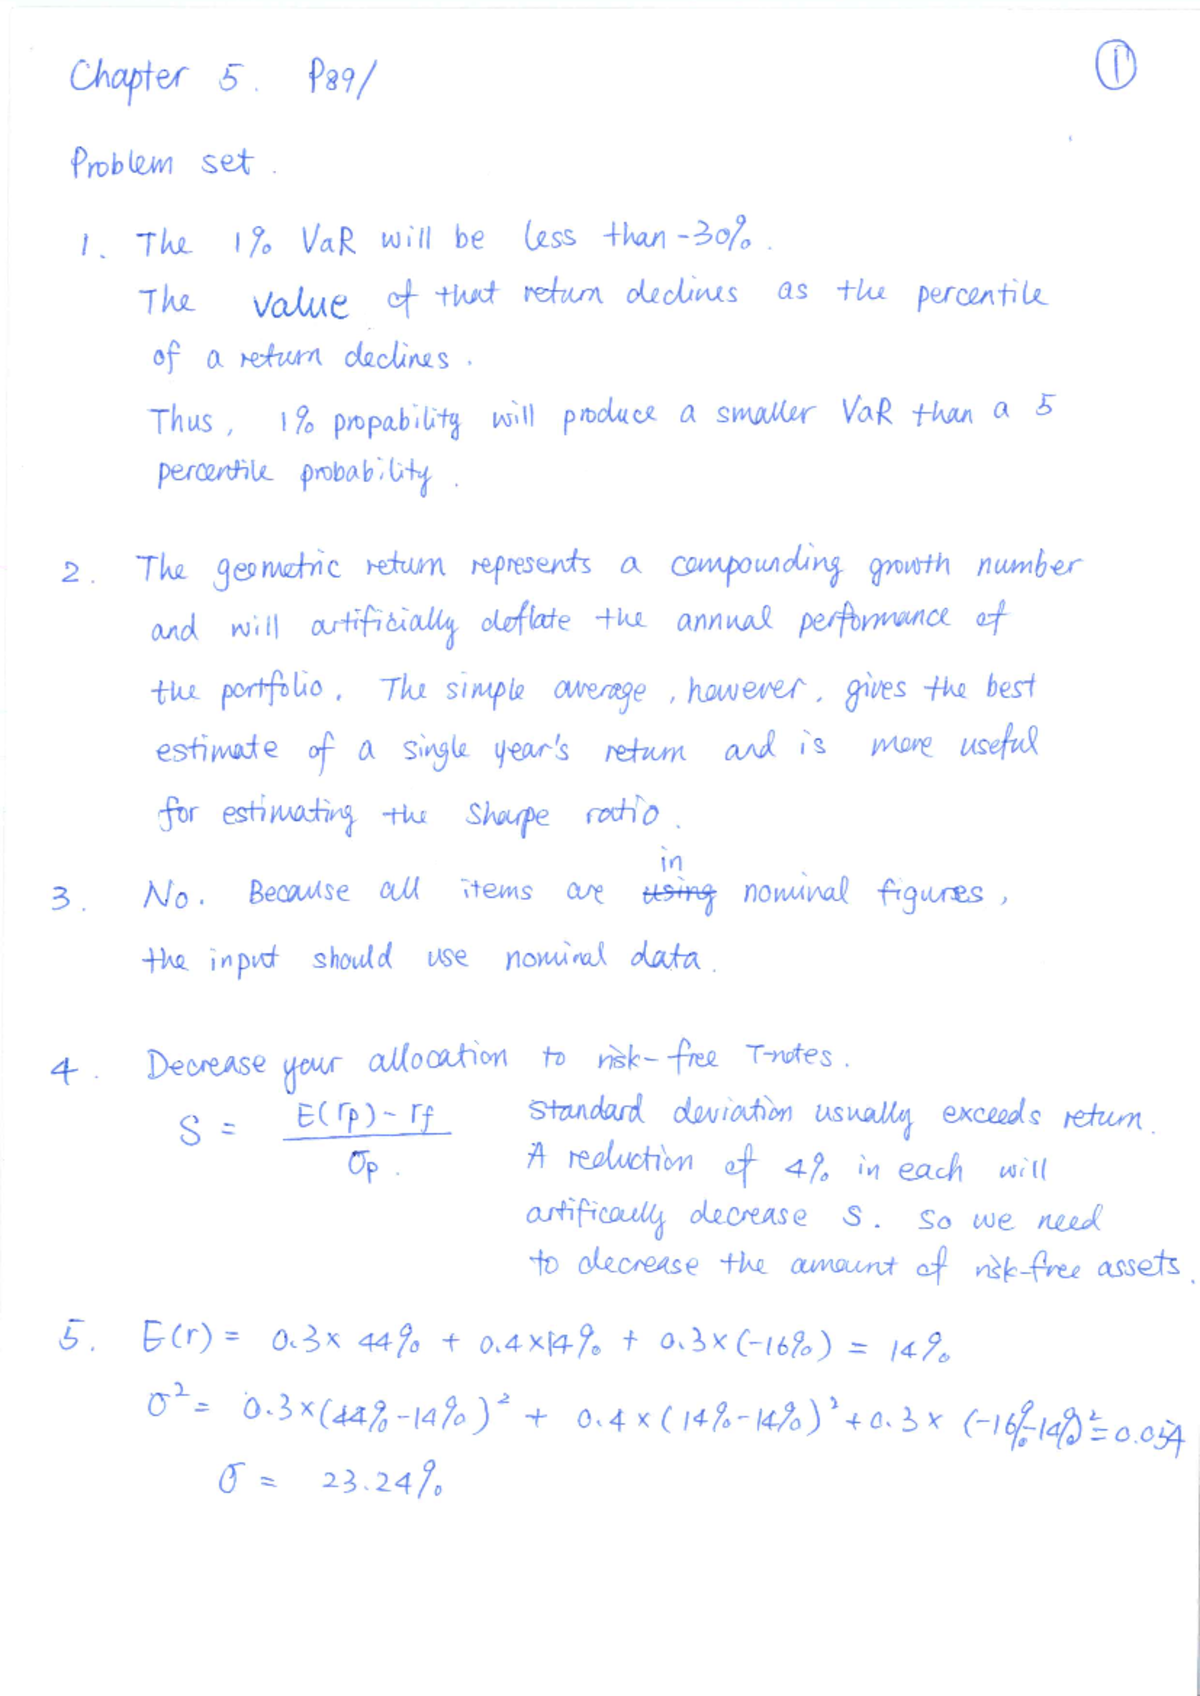 Chapter 5. P89/
①
Problem set.
1. The 1% VaR will be less than -30%.
The value of that return declines as the percentile
of a return declines.
Thus, 1% propability will produce a smaller VaR than a 5
percentile probability.
2. The geometric return represents a compounding growth number
and will artificially deflate the annual performance of
the portfolio. The simple average, however, gives the best
estimate of a single year's return and is more useful
for estimating the Sharpe ratio.
in
3. No. Because all items are using nominal figures,
the input should use nominal data.
4. Decrease your allocation to risk-free T-notes.
S = E(rp) - rf / σp. Standard deviation usually exceeds return.
A reduction of 4% in each will
artifically decrease S. So we need
to decrease the amount of risk-free assets.
5. E(r) = 0.3 × 44% + 0.4×14% + 0.3×(-16%) = 14%
σ² = 0.3×(44%-14%)² + 0.4×(14%-14%)² + 0.3× (-16%-14%)² = 0.054
σ = 23.24%